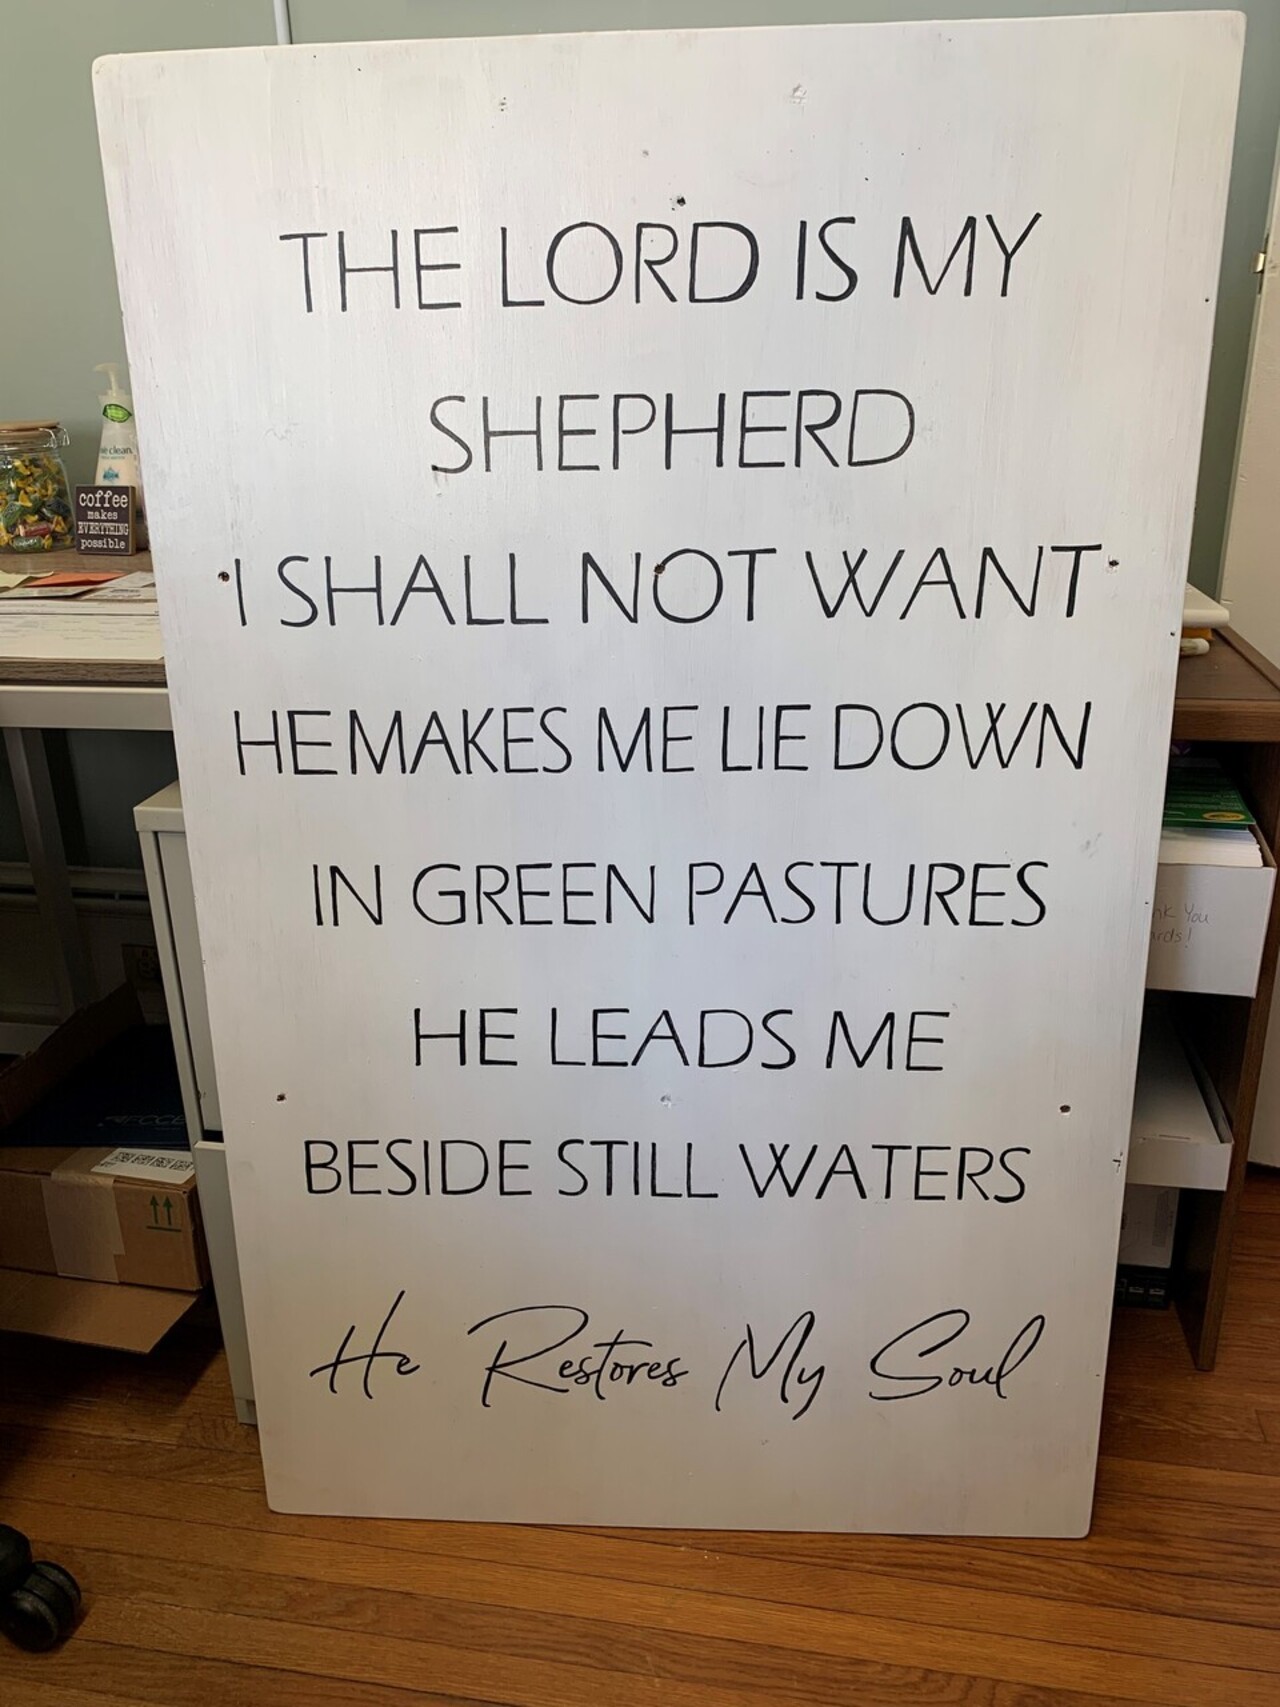 THE LORD IS MY
SHEPHERD
I SHALL NOT WANT
HE MAKES ME LIE DOWN
IN GREEN PASTURES
HE LEADS ME
BESIDE STILL WATERS
He Restores My Soul
clean
coffee
makes
EVERYTHING
possible
You